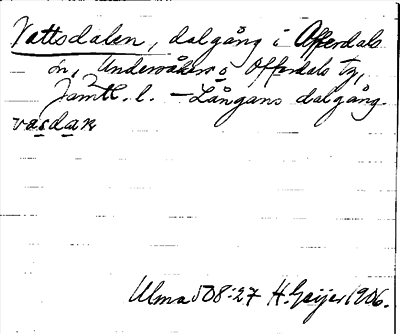 Vattsdalen, dalgång i Offerdals
sn, Undersåkers o Offerdals tg,
Jämtl. l. – Långans dalgång.
vasdan
Ulma 508:27 H. Geijer 1906.